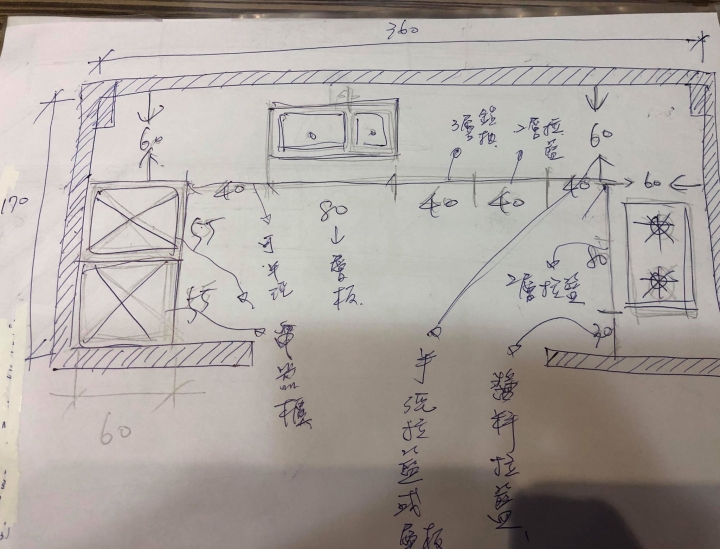 360
170
60
60
3層鋁抽
2層拉籃
40
80
↓
層板
40
40
40
60
55
55
80
30
2層拉籃
電器櫃
半迴拉籃或層板
醬料拉籃
60